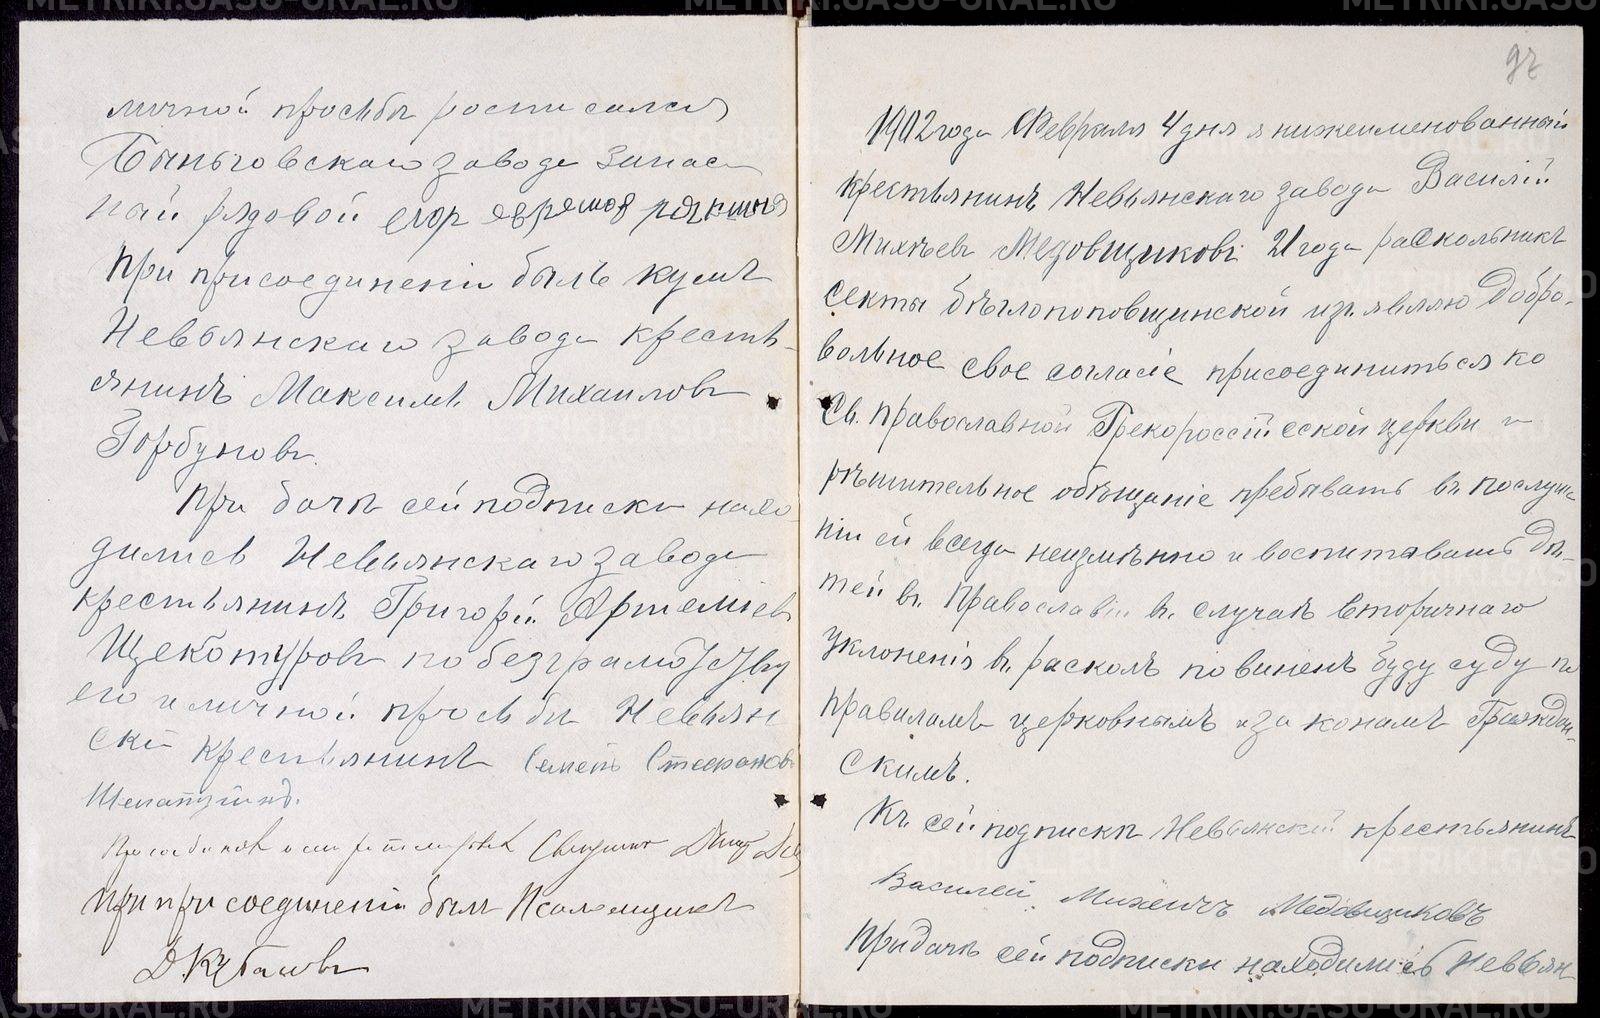 личной просьбы росписался
Быньговскаго завода запас-
ный рядовой егор ефремов
При присоединеніи былъ кумъ
Невьянскаго завода кресть-
янинъ Максимъ Михаиловъ
Горбуновъ.
При дачѣ сей подписки нахо-
дились Невьянскаго завода
крестьянинъ Григорій Артеміевъ
Щекотуровъ по безграмотству
его и личной просьбы Невьян
скій крестьянинъ Семенъ Стефановъ
Присоединялъ Священ
При присоединеніи былъ Псаломщикъ
97
1902 года Февраля 4 дня я нижеименованный
крестьянинъ Невьянскаго завода Василій
Михѣевъ Медовщиковъ 21 года раскольникъ
секты бѣглопоповщинской изъявляю добро-
вольное свое согласіе присоединиться ко
Св. православной Грекороссійской церкви и
рѣшительное обѣщаніе пребывать въ послуша
ніи ей всегда неизмѣнно и воспитывать дѣ-
тей въ Православіи въ случаѣ вторичнаго
уклоненія въ расколъ повиненъ буду суду по
правиламъ церковнымъ и законамъ Граждан-
скимъ.
Къ сей подпискѣ Невьянскій крестьянинъ
Василей Михеичъ Медовщиковъ
При дачѣ сей подписки находились Невьян
METRIKI.GASO-URAL.RU